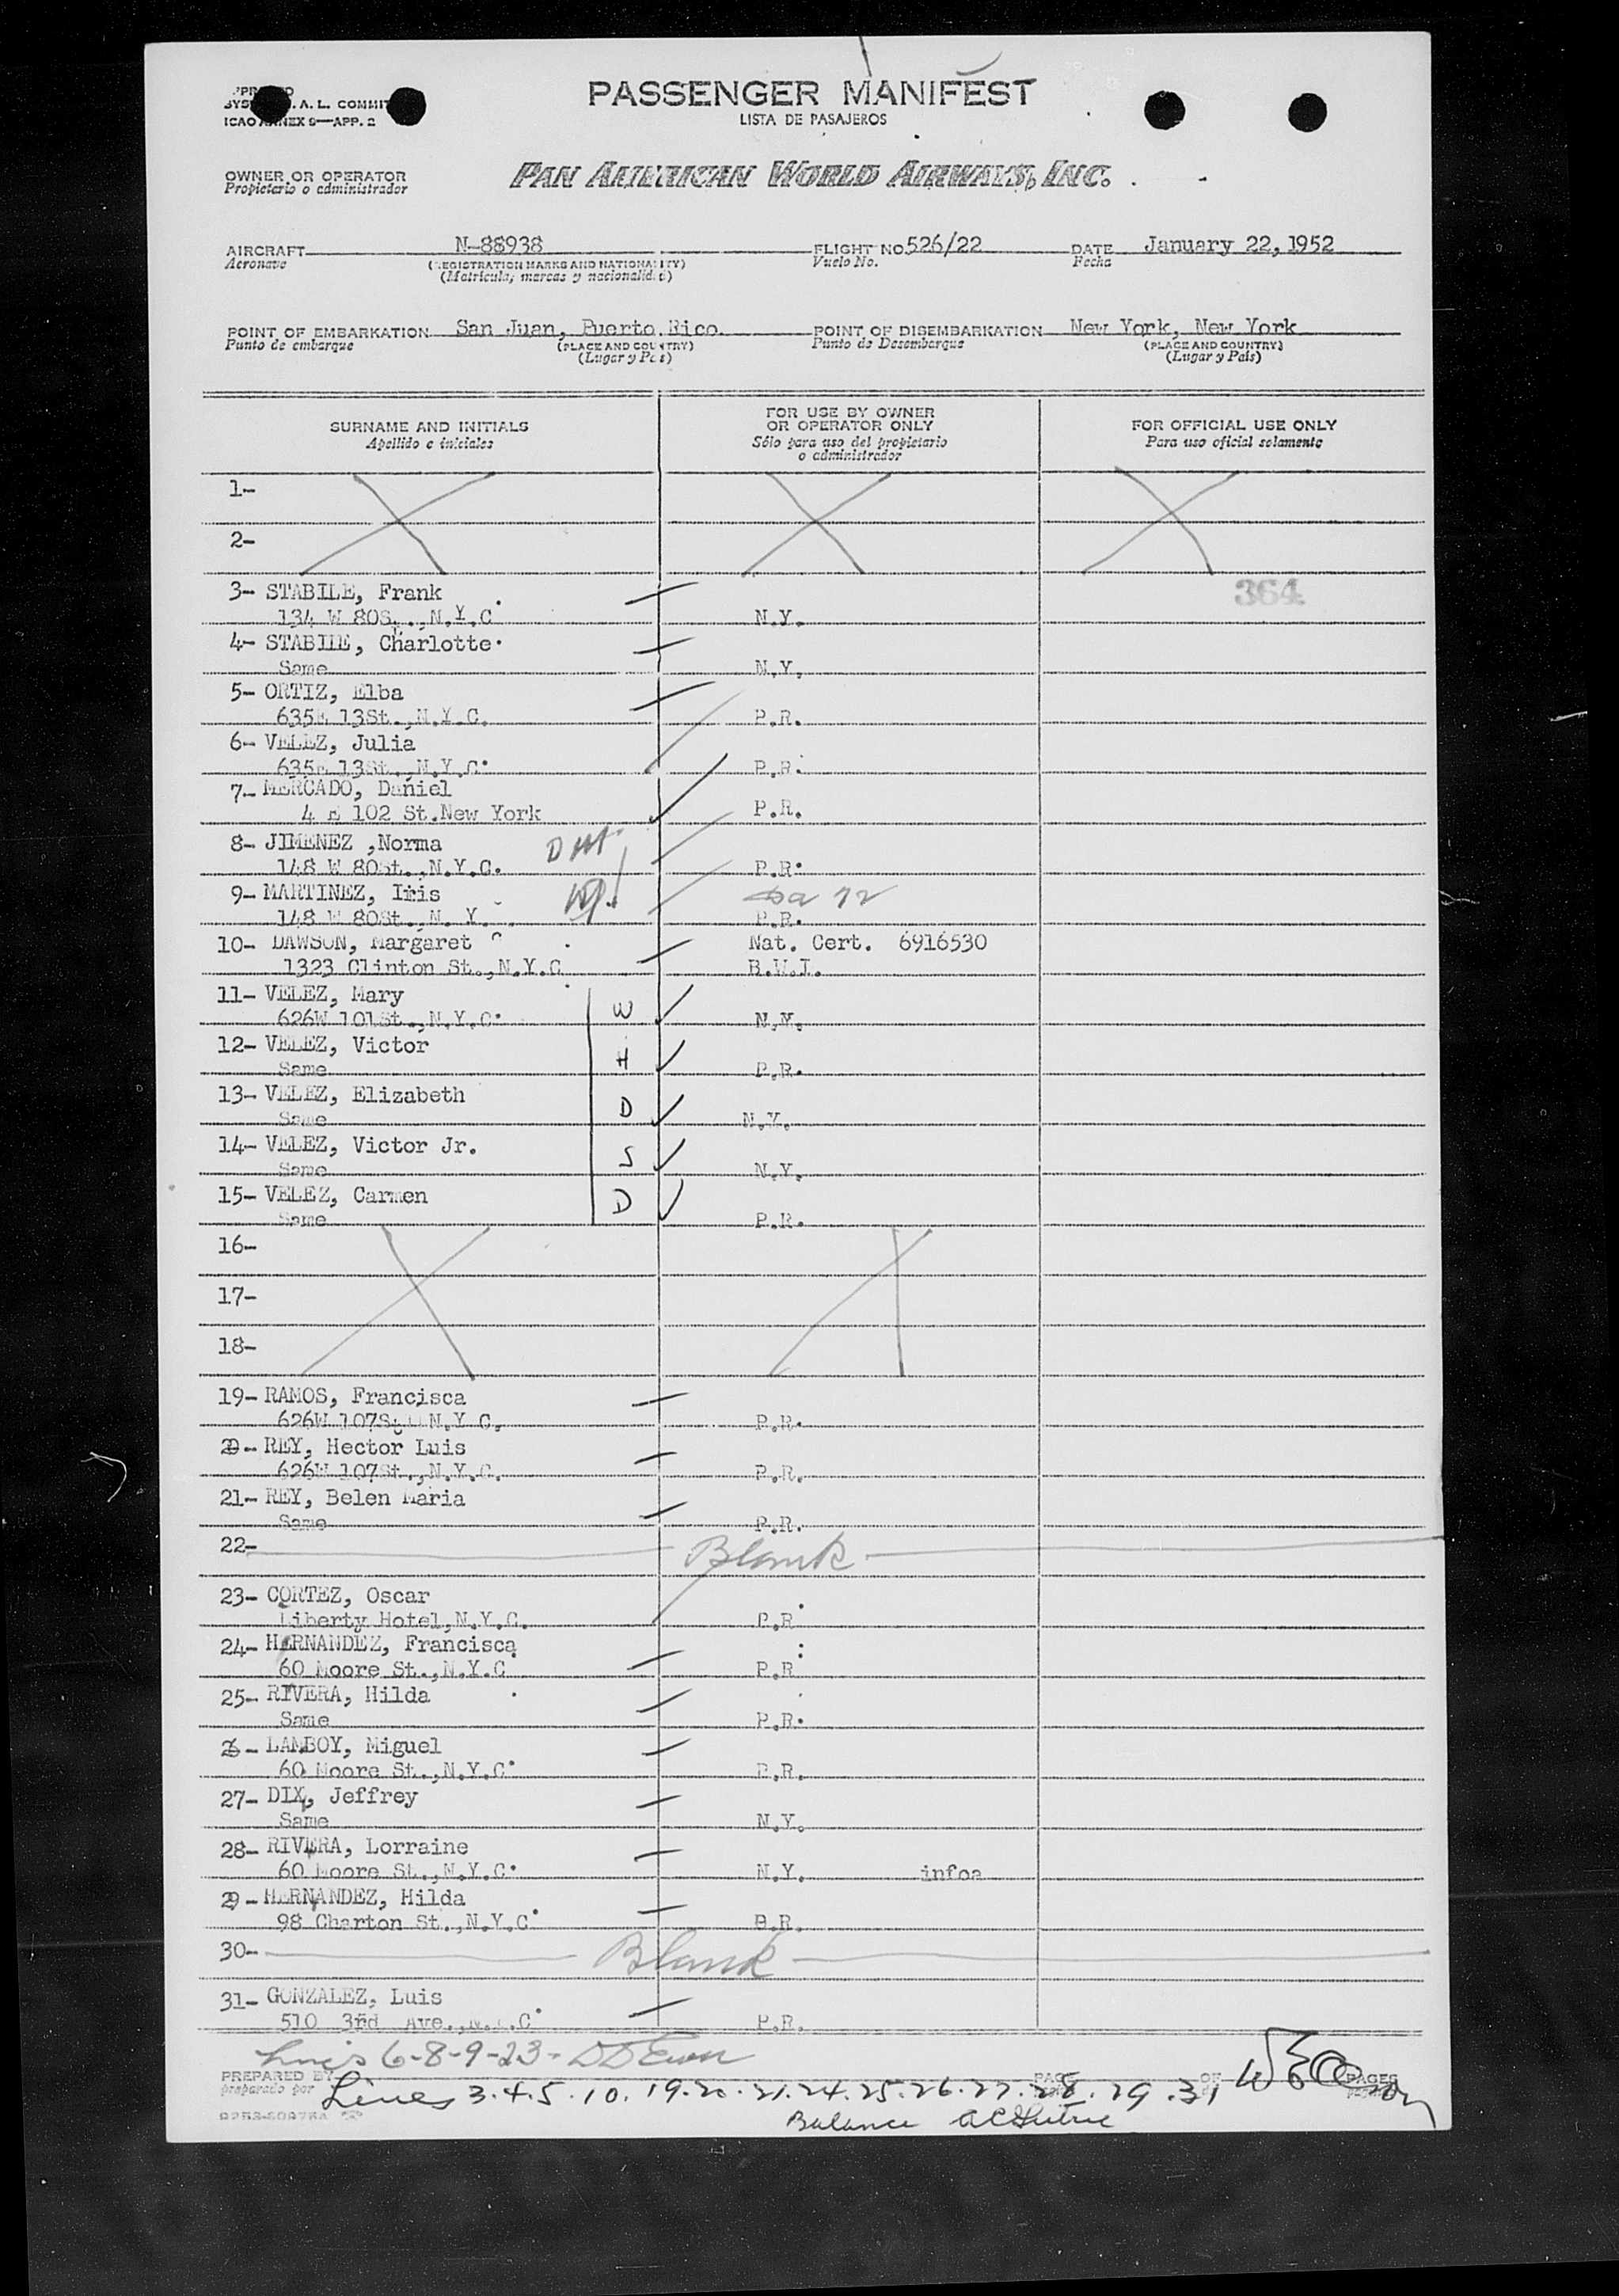 A. L. COMMIT
ICAO ANNEX 9—APP. 2
PASSENGER MANIFEST
LISTA DE PASAJEROS
OWNER OR OPERATOR
Propietario o administrador
PAN AMERICAN WORLD AIRWAYS, INC.
AIRCRAFT N-88938 FLIGHT NO. 526/22 DATE January 22, 1952
Aeronave (REGISTRATION MARKS AND NATIONALITY) Vuelo No. Fecha
(Matrícula, marcas y nacionalidad)
POINT OF EMBARKATION San Juan, Puerto Rico. POINT OF DISEMBARKATION New York, New York
Punto de embarque (PLACE AND COUNTRY) Punto de Desembarque (PLACE AND COUNTRY)
(Lugar y País) (Lugar y País)
SURNAME AND INITIALS
Apellido e iniciales
FOR USE BY OWNER
OR OPERATOR ONLY
Sólo para uso del propietario
o administrador
FOR OFFICIAL USE ONLY
Para uso oficial solamente
1-
2-
3- STABILE, Frank 364
134 W 80S. ., N.Y.C N.Y.
4- STABILE, Charlotte.
Same N.Y.
5- ORTIZ, Elba
635E 13St., N.Y.C. P.R.
6- VELEZ, Julia
635E 13St., N.Y.C. P.R.
7- MERCADO, Daniel
4 E 102 St.New York P.R.
8- JIMENEZ ,Norma
148 W 80St., N.Y.C. P.R.
9- MARTINEZ, Iris
148 W 80St., N. Y P.R.
10- DAWSON, Margaret Nat. Cert. 6916530
1323 Clinton St., N.Y.C B.W.I.
11- VELEZ, Mary W
626W 101St., N.Y.C. N.Y.
12- VELEZ, Victor H
Same P.R.
13- VELEZ, Elizabeth D
Same N.Y.
14- VELEZ, Victor Jr. S
Same N.Y.
15- VELEZ, Carmen D
Same P.R.
16-
17-
18-
19- RAMOS, Francisca
626W 107St N.Y C. P.R.
20- REY, Hector Luis
626W 107St., N.Y.C. P.R.
21- REY, Belen Maria
Same P.R.
22- Blank
23- CORTEZ, Oscar
Liberty Hotel, N.Y.C. P.R
24- HERNANDEZ, Francisca
60 Moore St., N.Y.C P.R
25- RIVERA, Hilda
Same P.R.
26- LAMBOY, Miguel
60 Moore St., N.Y.C. P.R.
27- DIX, Jeffrey
Same N.Y.
28- RIVERA, Lorraine
60 Moore St., N.Y.C. N.Y. infoa
29- HERNANDEZ, Hilda
98 Charton St., N.Y.C P.R.
30- Blank
31- GONZALEZ, Luis
510 3rd Ave., N.Y.C P.R.
6-8-9-23-
PREPARED BY
preparado por Lines 3.4.5.10.19.20.21.24.25.26.27.28.29.31 PAGE OF PAGES
Balance